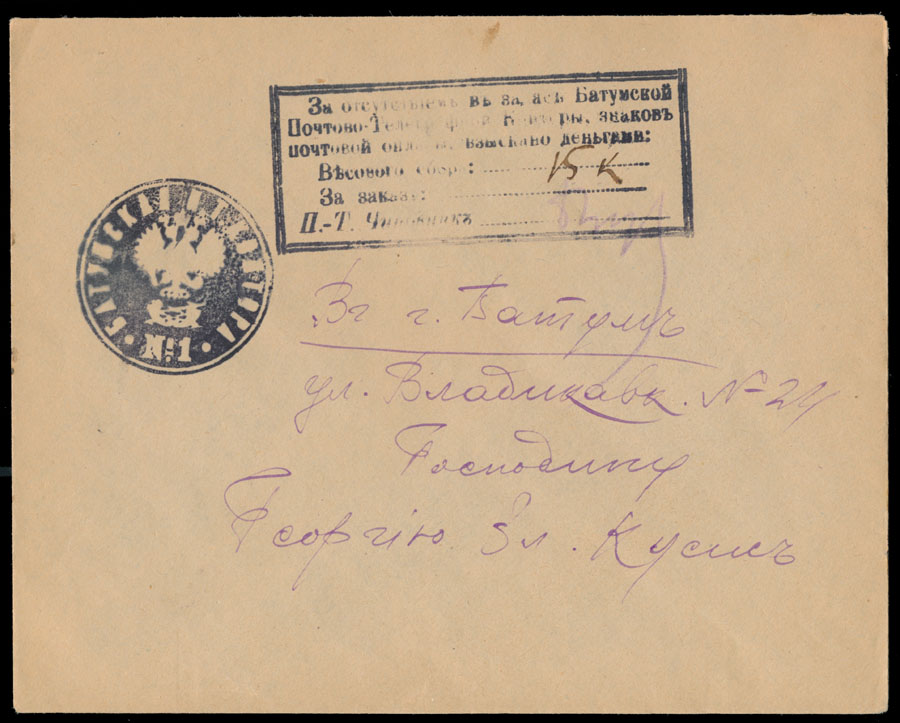 За отсутствіемъ въ запасѣ Батумской
Почтово-Телеграфной Конторы, знаковъ
почтовой оплаты, взыскано деньгами:
Вѣсового сбора: 15 к
За заказъ:
П.-Т. Чиновникъ
БАТУМСКАЯ КОНТОРА
№ 1
Въ г. Батумъ
ул. Владикавк. № 24
Господину
Георгію Эл. Кусисъ